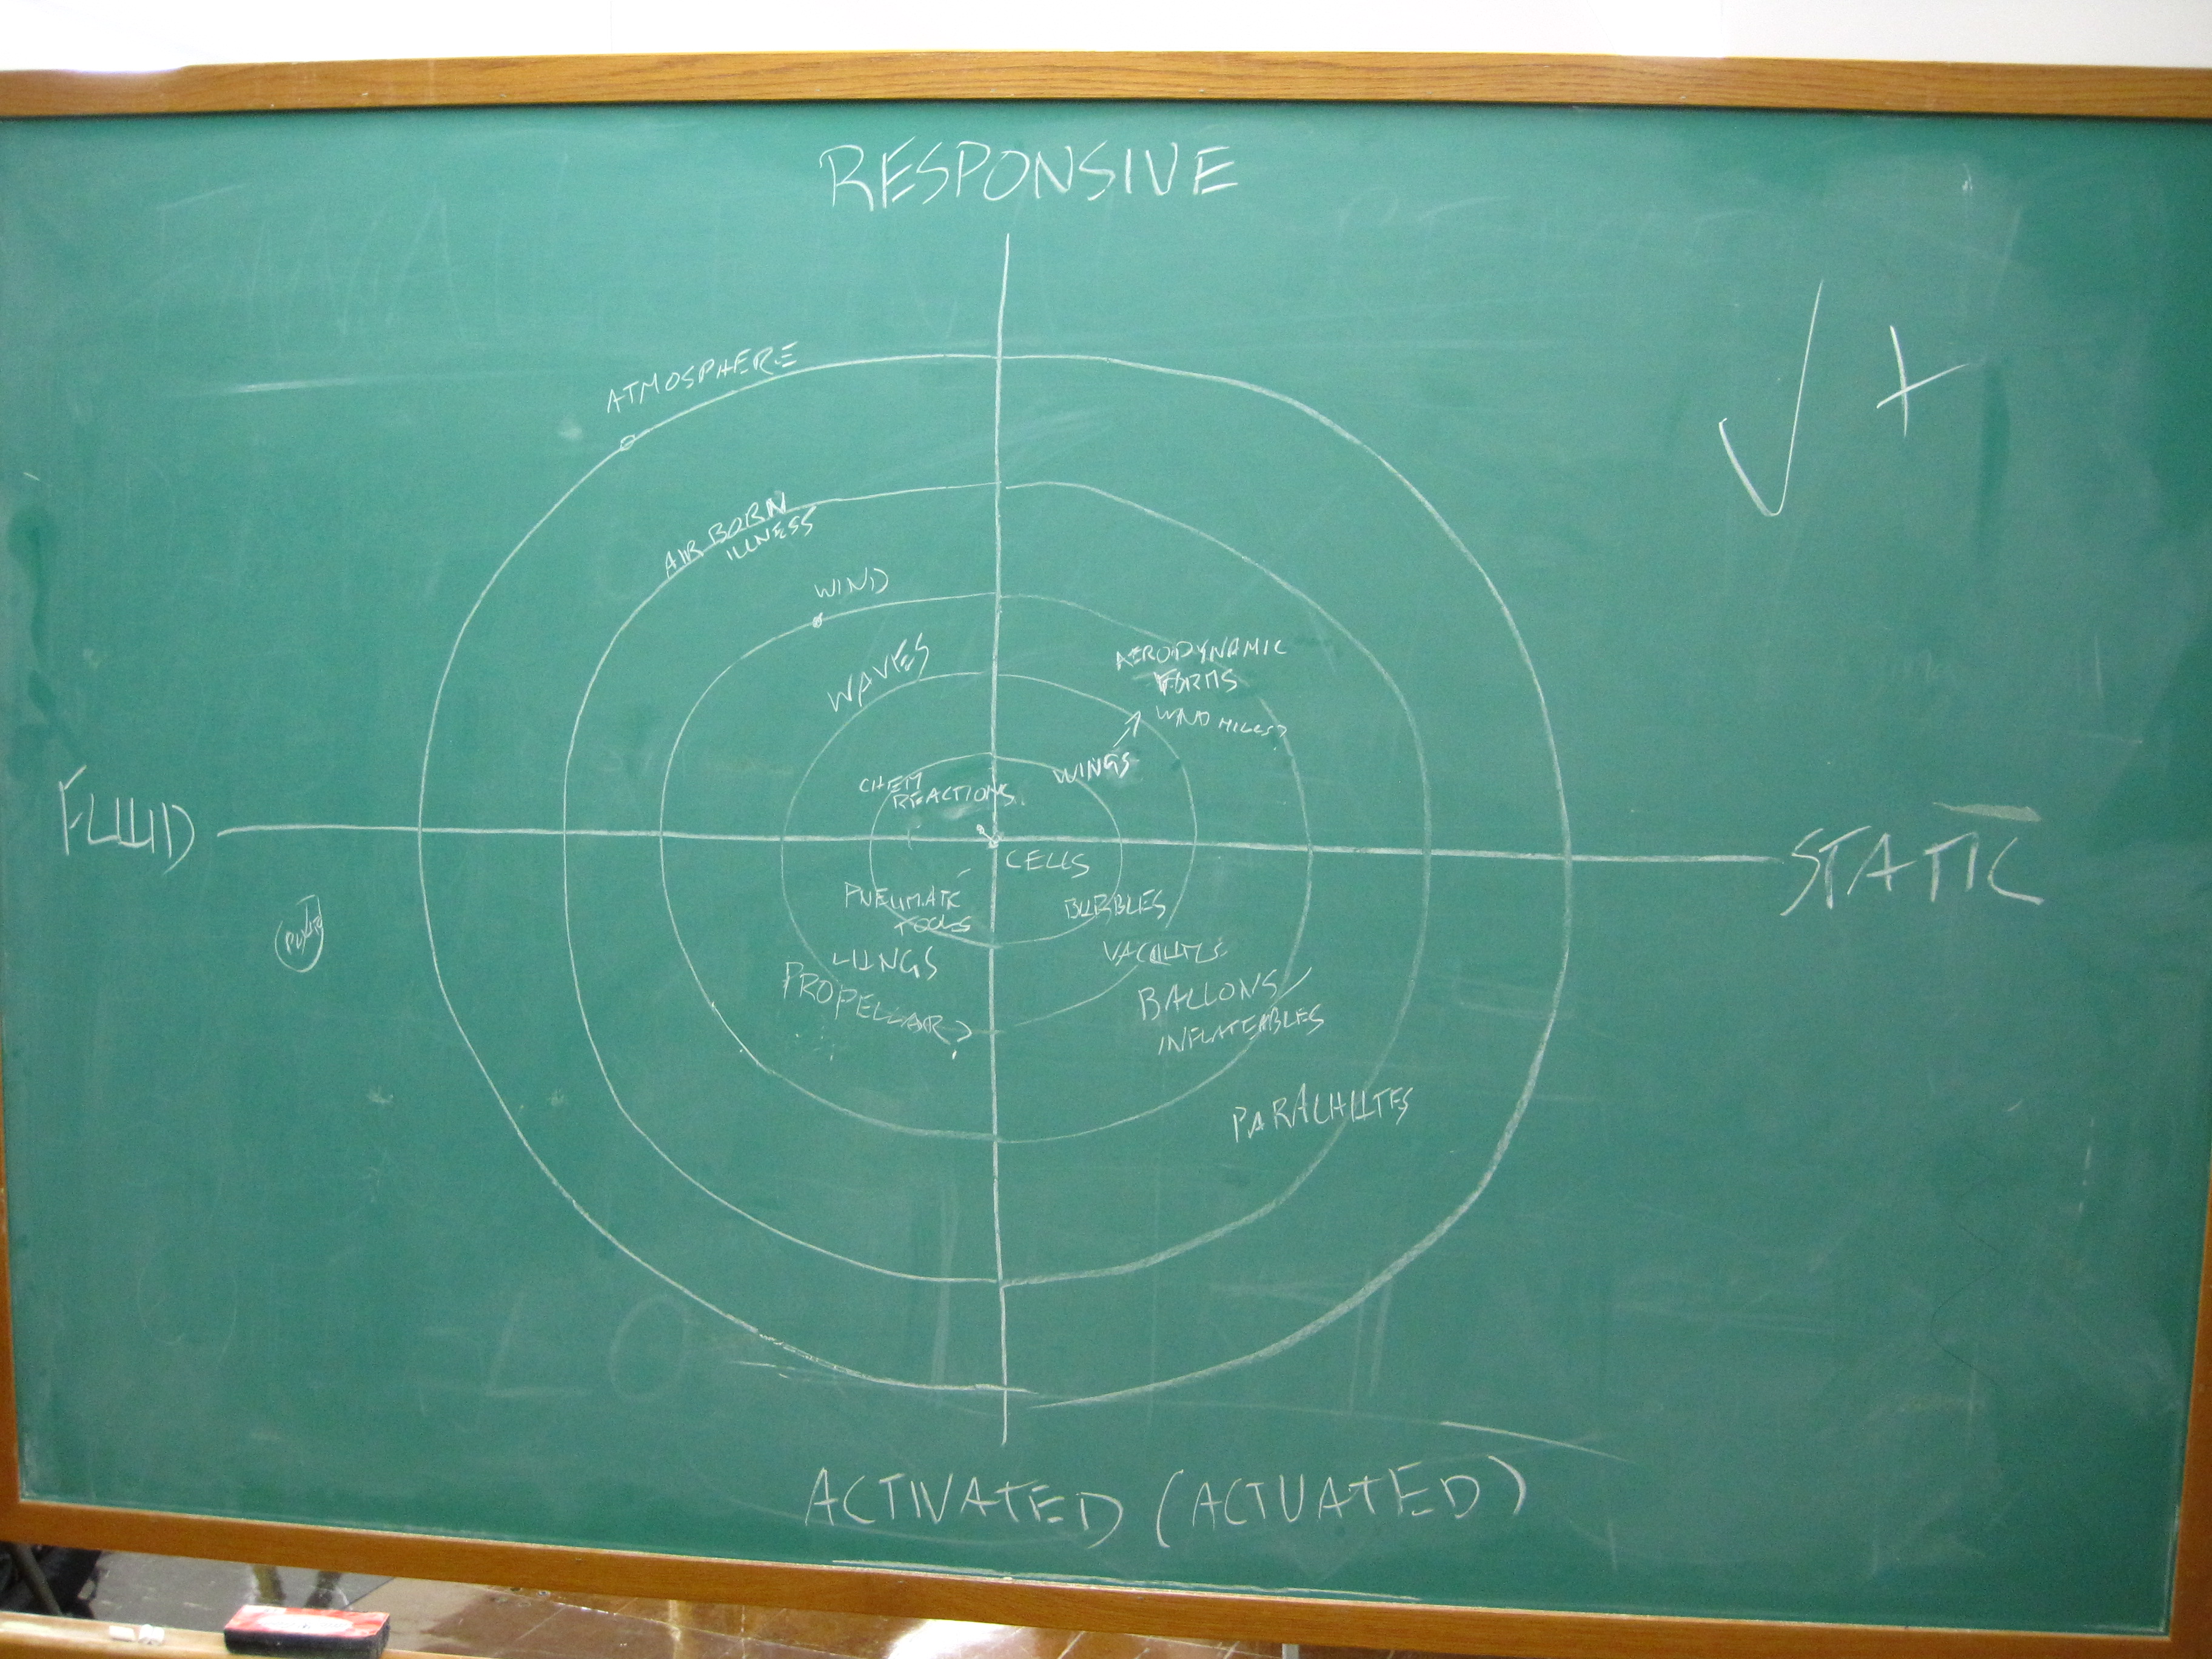 RESPONSIVE
ATMOSPHERE
AIR BORN
ILLNESS
WIND
WAVES
AERODYNAMIC
FORMS
WIND MILLS?
WINGS
CHEM
REACTIONS
FLUID
STATIC
CELLS
PNEUMATIC
TOOLS
BUBBLES
LUNGS
VACUUMS
PROPELLAR?
BALLONS
INFLATEABLES
PARACHUTES
ACTIVATED (ACTUATED)